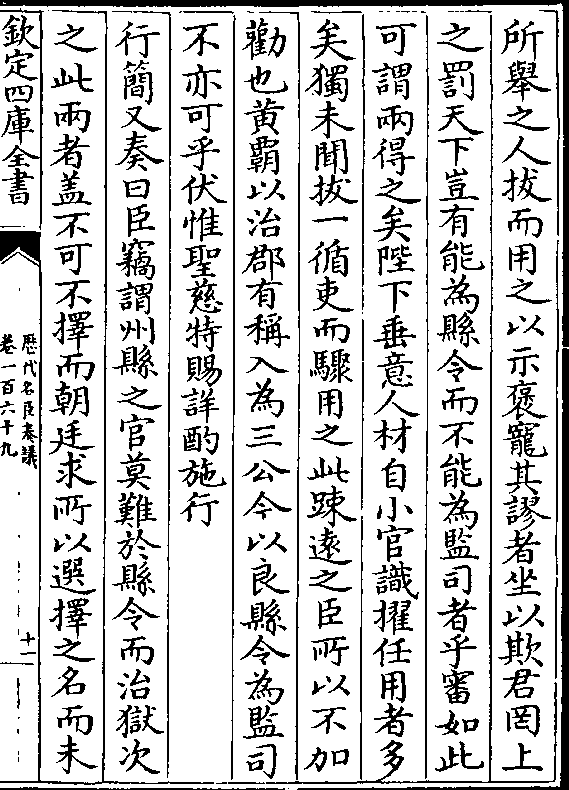 所舉之人拔而用之以示褒寵其謬者坐以欺君罔上
之罰天下豈有能為縣令而不能為監司者乎審如此
可謂兩得之矣陛下垂意人材自小官識擢任用者多
矣獨未聞拔一循吏而驟用之此踈遠之臣所以不加
勸也黄霸以治郡有稱入為三公今以良縣令為監司
不亦可乎伏惟聖慈特賜詳酌施行
行簡又奏曰臣竊謂州縣之官莫難於縣令而治獄次
之此兩者盖不可不擇而朝廷求所以選擇之名而未
欽定四庫全書
歷代名臣奏議
卷一百六十九
十一